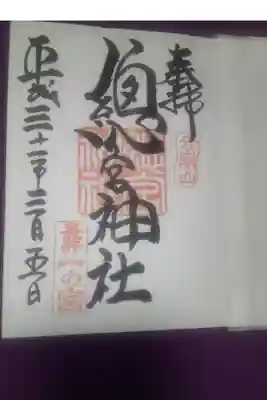 奉拝
總宮神社
平成三十一年三月五日